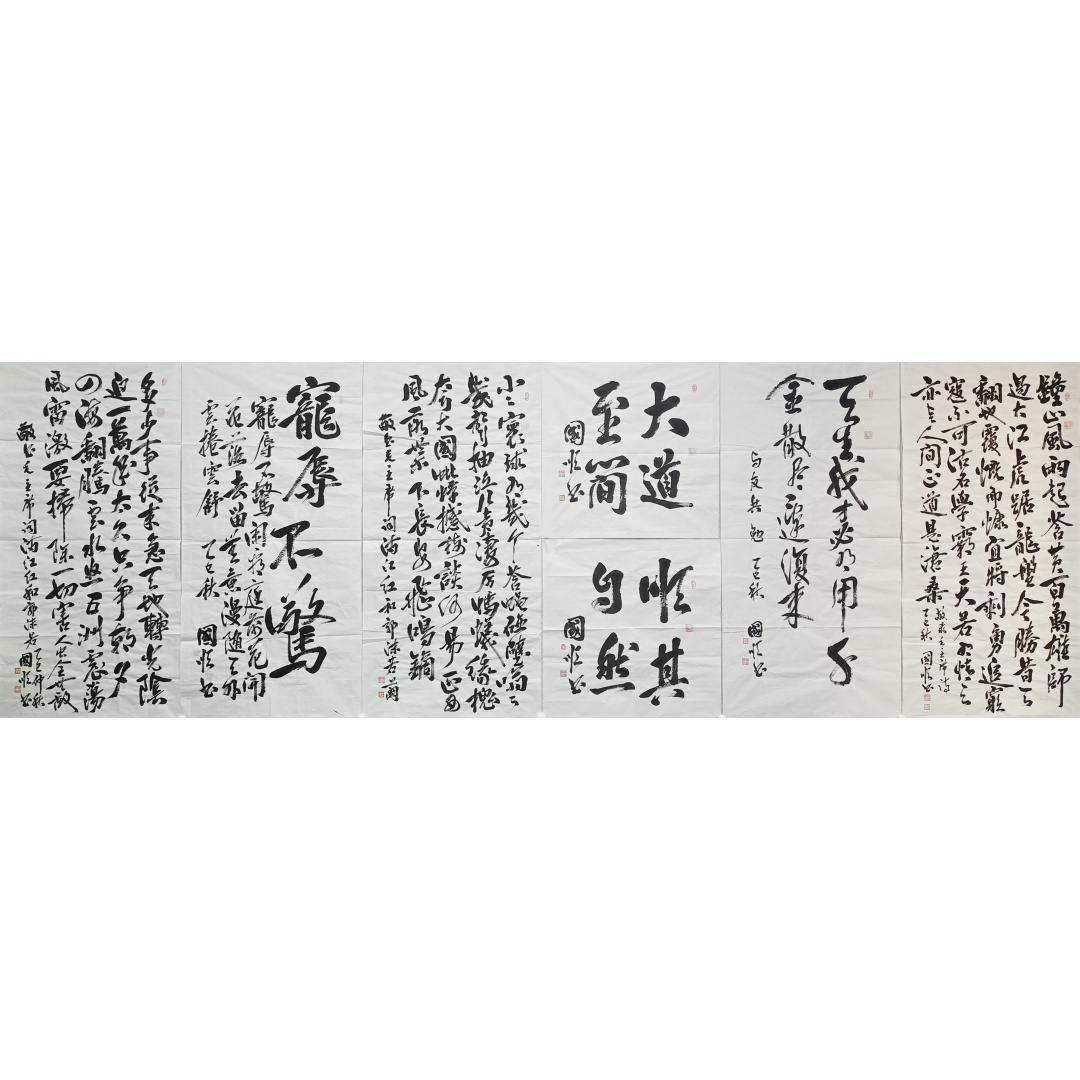 鐘山風雨起蒼黄百萬雄師
過大江虎踞龍盤今勝昔天
翻地覆慨而慷宜將剩勇追窮
寇不可沽名學霸王天若有情天
亦老人間正道是滄桑
敬录毛主席詩
乙巳秋 國順书
天生我才必有用千
金散尽還復来
与友共勉 乙巳秋 國順书
大道
至簡
國順书
順其
自然
國順书
小小寰球有幾个蒼蠅碰壁嗡嗡
幾聲抽泣 凄厉螞蟻緣槐
夸大國蚍蜉撼樹談何易正西
風落葉下長安飛鳴鏑
敬书毛主席词满江红和郭沫若上闋
寵辱不驚
寵辱不驚閑看庭前花開
花落去留無意漫随天外
雲捲雲舒 乙巳秋 國順书
多少事從来急天地轉光陰
迫一萬年太久只争朝夕
四海翻騰雲水怒五洲震蕩
風雷激要掃除一切害人虫全無敵
敬书毛主席词满江红和郭沫若 乙巳仲秋 國順书